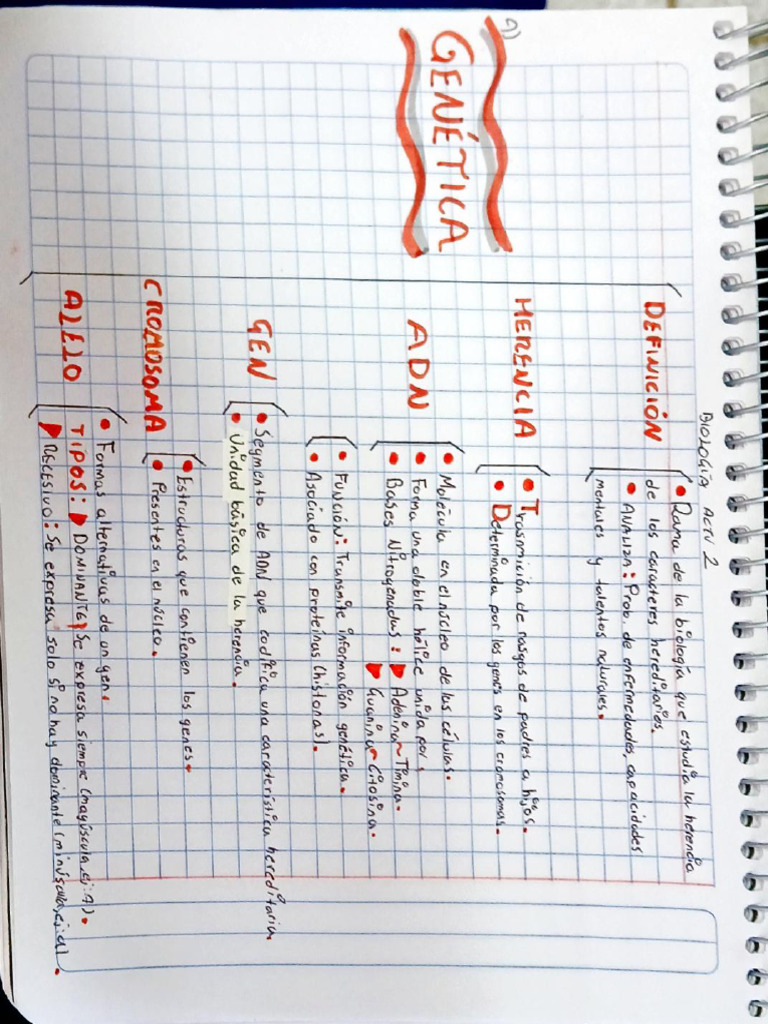 BIOLOGÍA ACTV 2
9)
GENÉTICA
DEFINICIÓN
• Rama de la biología que estudia la herencia
de los caracteres hereditarios.
• ANALIZA: Prob. de enfermedades, capacidades
mentales y talentos naturales.
HERENCIA
• Trasmición de rasgos de padres a hijos.
• Determinada por los genes en los cromosomas.
ADN
• Molécula en el núcleo de las células.
• Forma una doble hélice unida por:
• Bases Nitrogenadas: Adenina~Timina.
Guanina~Citosina.
• Función: Transmite información genética.
• Asociado con proteínas (histonas).
GEN
• Segmento de ADN que codifica una caraterística hereditaria.
• Unidad básica de la herencia.
CROMOSOMA
• Estructuras que contienen los genes.
• Presentes en el núcleo.
ALELO
• Formas alternativas de un gen.
TIPOS: DOMINANTE: Se expresa siempre (mayúscula, ej: A).
RECESIVO: Se expresa solo si no hay dominante (minúscula, ej: a).